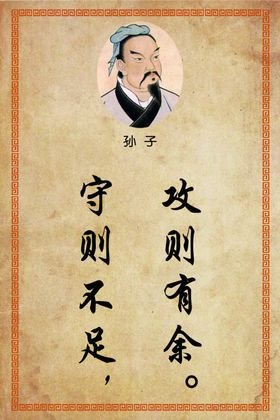 孙子
守则不足，
攻则有余。